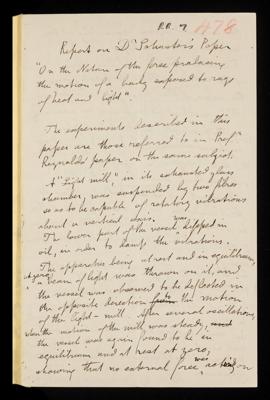 RR. 7 478
Report on Dr Schuster's Paper
"On the Nature of the force producing
the motion of a body exposed to rays
of heat and light".
The experiments described in this
paper are those referred to in Profr
Reynolds' paper on the same subject.
A "light mill", in its exhausted glass
chamber, was suspended by two fibres
so as to be capable of rotatory vibrations
about a vertical axis.
The lower part of the vessel was dipped in
oil, in order to damp the vibrations.
The apparatus being at rest and in equilibrium,
a beam of light was thrown on it, and
the vessel was observed to be deflected in
the opposite direction to the motion
of the light-mill. After several oscillations,
when the motion of the mill was steady,
the vessel was again found to be in
equilibrium and at rest at zero,
showing that no external force was acting on